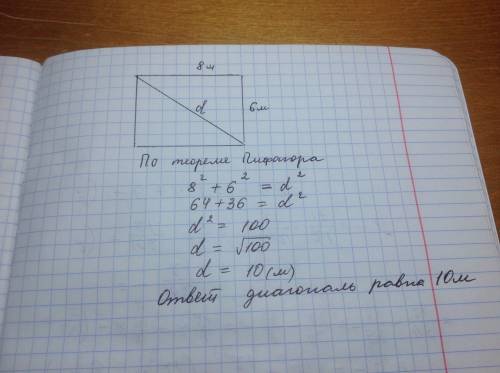 8м
d
6м
По теореме Пифагора
8² + 6² = d²
64 + 36 = d²
d² = 100
d = √100
d = 10 (м)
Ответ диагональ равна 10м